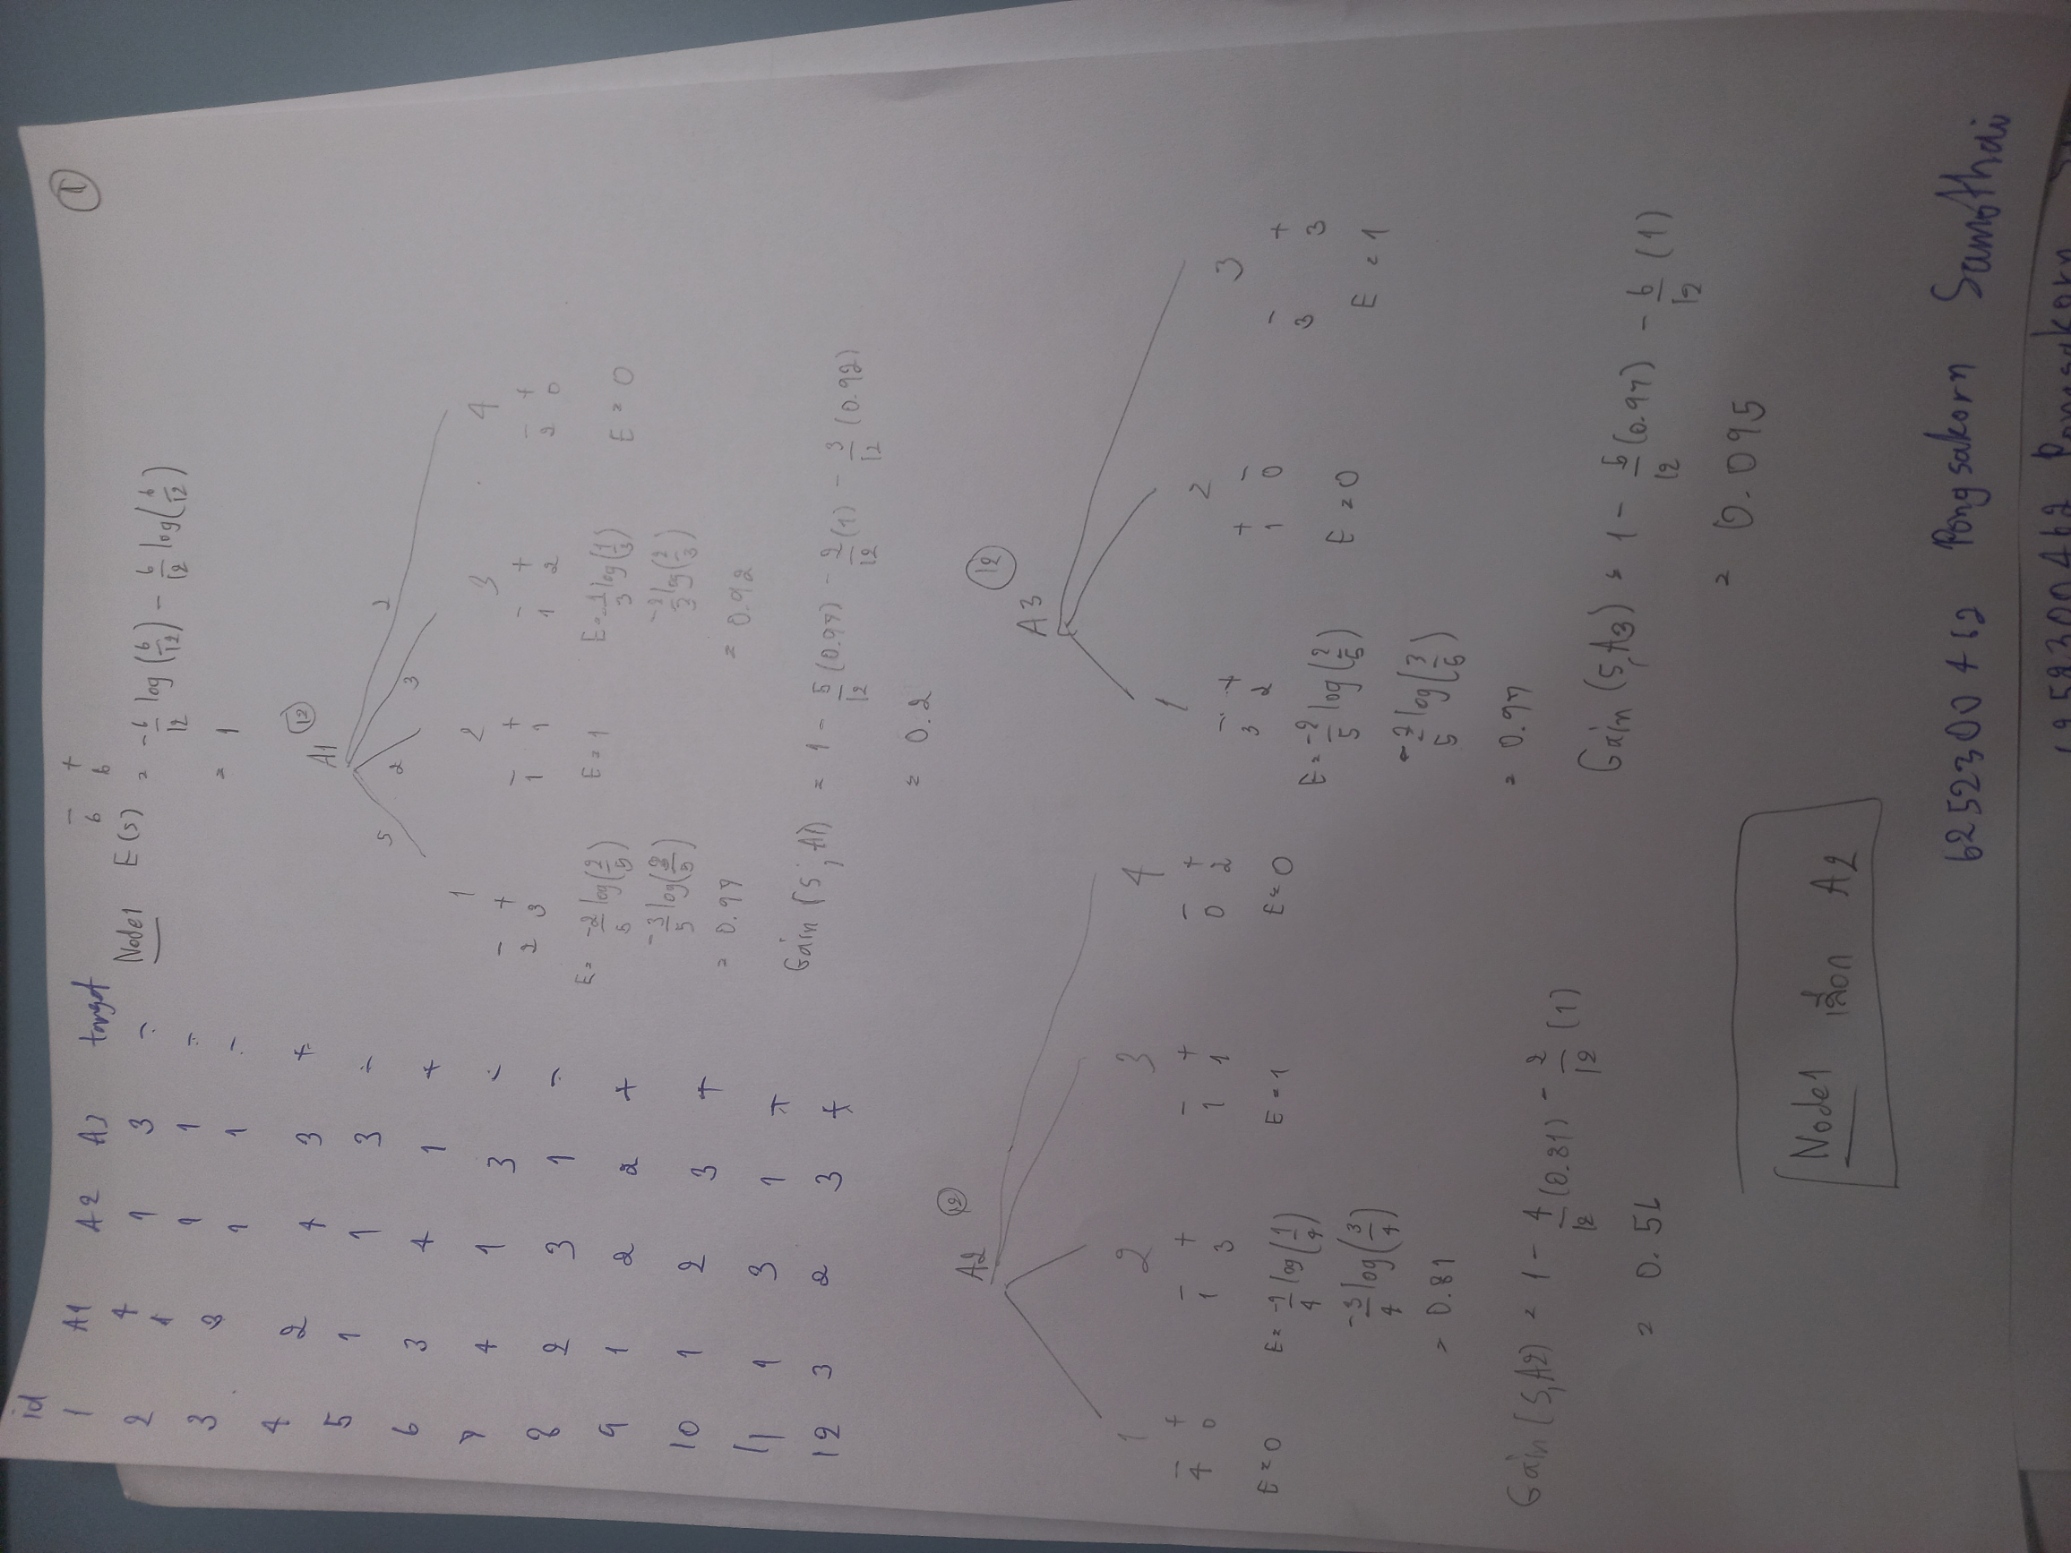 id A1 A2 A3 target
1 4 1 3 -
2 1 1 1 -
3 3 1 1 -
4 2 4 3 +
5 1 1 3 -
6 3 4 1 +
7 4 1 3 -
8 2 3 1 -
9 1 2 2 +
10 1 2 3 +
11 1 3 1 +
12 3 2 3 +
1
- +
6 6
Node1 E(S) = -6/12 log(6/12) - 6/12 log(6/12)
= 1
A1 12
5 2 3 2
1 2 3 4
- + - + - + - +
2 3 1 1 1 2 2 0
E = -2/5 log(2/5) E = 1 E = -1/3 log(1/3) E = 0
-3/5 log(3/5) -2/3 log(2/3)
= 0.97 = 0.92
Gain (S, A1) = 1 - 5/12 (0.97) - 2/12 (1) - 3/12 (0.92)
= 0.2
A2 12
1 2 3 4
- + - + - + - +
4 0 1 3 1 1 0 2
E = 0 E = -1/4 log(1/4) E = 1 E = 0
-3/4 log(3/4)
= 0.81
Gain (S, A2) = 1 - 4/12 (0.81) - 2/12 (1)
= 0.56
A3 12
1 2 3
- + + - - +
3 2 1 0 3 3
E = -2/5 log(2/5) E = 0 E = 1
-3/5 log(3/5)
= 0.97
Gain (S, A3) = 1 - 5/12 (0.97) - 6/12 (1)
= 0.095
Node1 เลือก A2
6252300462 Pongsakorn Samothai
6252300462 Pongsakorn